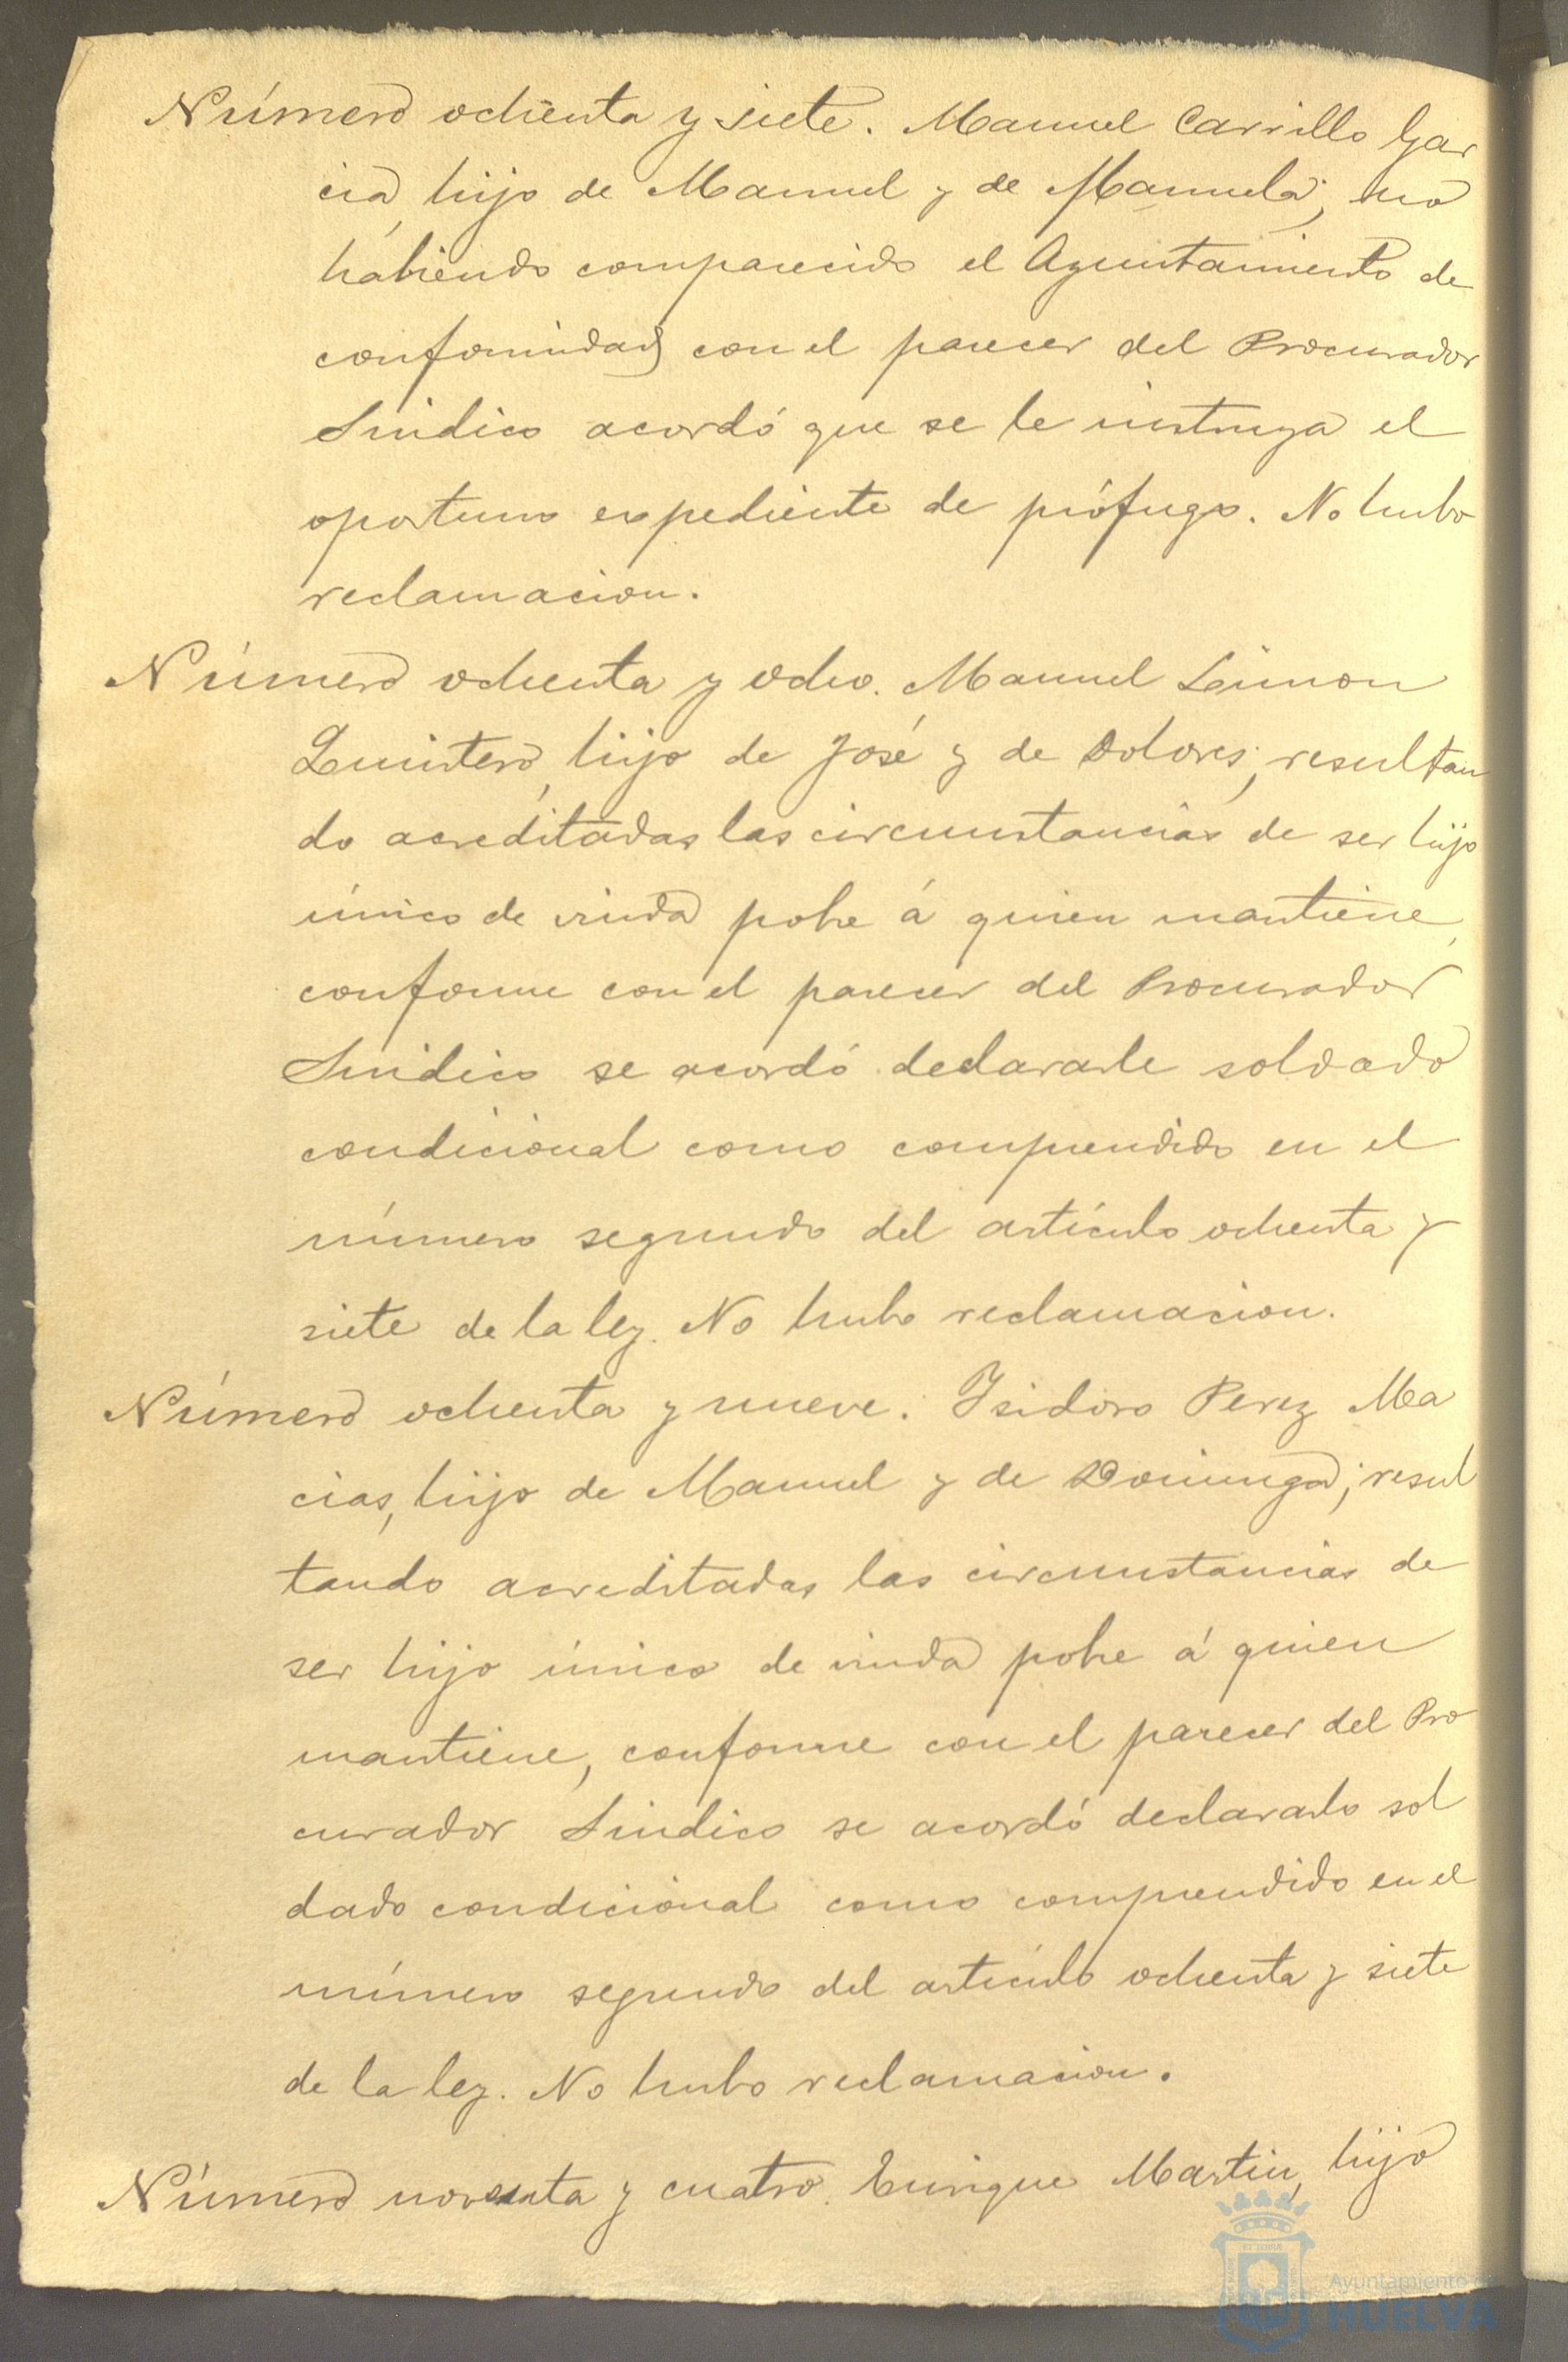 Número ochenta y siete. Manuel Carrillo Gar
cia, hijo de Manuel y de Manuela; no
habiendo comparecido el Ayuntamiento de
conformidad con el parecer del Procurador
Sindico acordó que se le instruya el
oportuno expediente de prófugo. No hubo
reclamacion.
Número ochenta y ocho. Manuel Limon
Quintero, hijo de José y de Dolores; resultan
do acreditadas las circunstancias de ser hijo
único de viuda pobre á quien mantiene,
conforme con el parecer del Procurador
Sindico se acordó declararle soldado
condicional como comprendido en el
número segundo del artículo ochenta y
siete de la ley. No hubo reclamacion.
Número ochenta y nueve. Isidoro Perez Ma
cias, hijo de Manuel y de Dominga; resul
tando acreditadas las circunstancias de
ser hijo único de viuda pobre á quien
mantiene, conforme con el parecer del Pro
curador Sindico se acordó declararlo sol
dado condicional como comprendido en el
número segundo del artículo ochenta y siete
de la ley. No hubo reclamacion.
Número noventa y cuatro. Enrique Martin, hijo
Ayuntamiento de
HUELVA